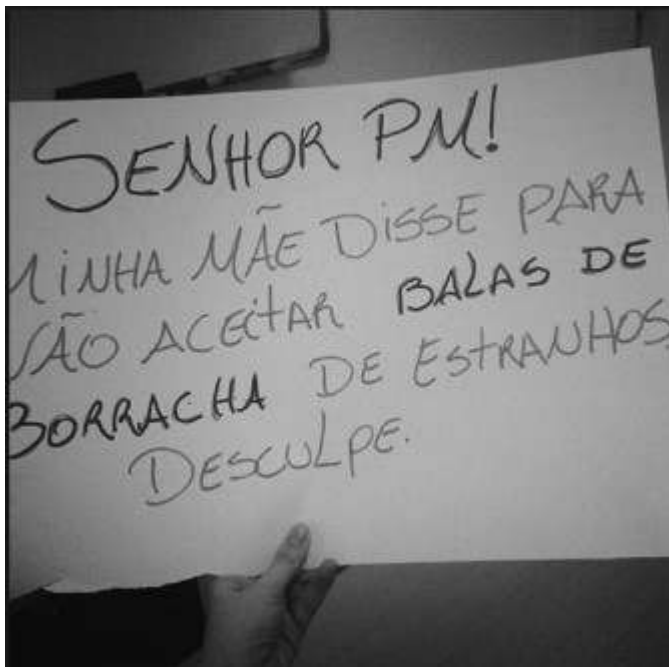 SENHOR PM!
MINHA MÃE DISSE PARA
NÃO ACEITAR BALAS DE
BORRACHA DE ESTRANHOS,
DESCULPE.